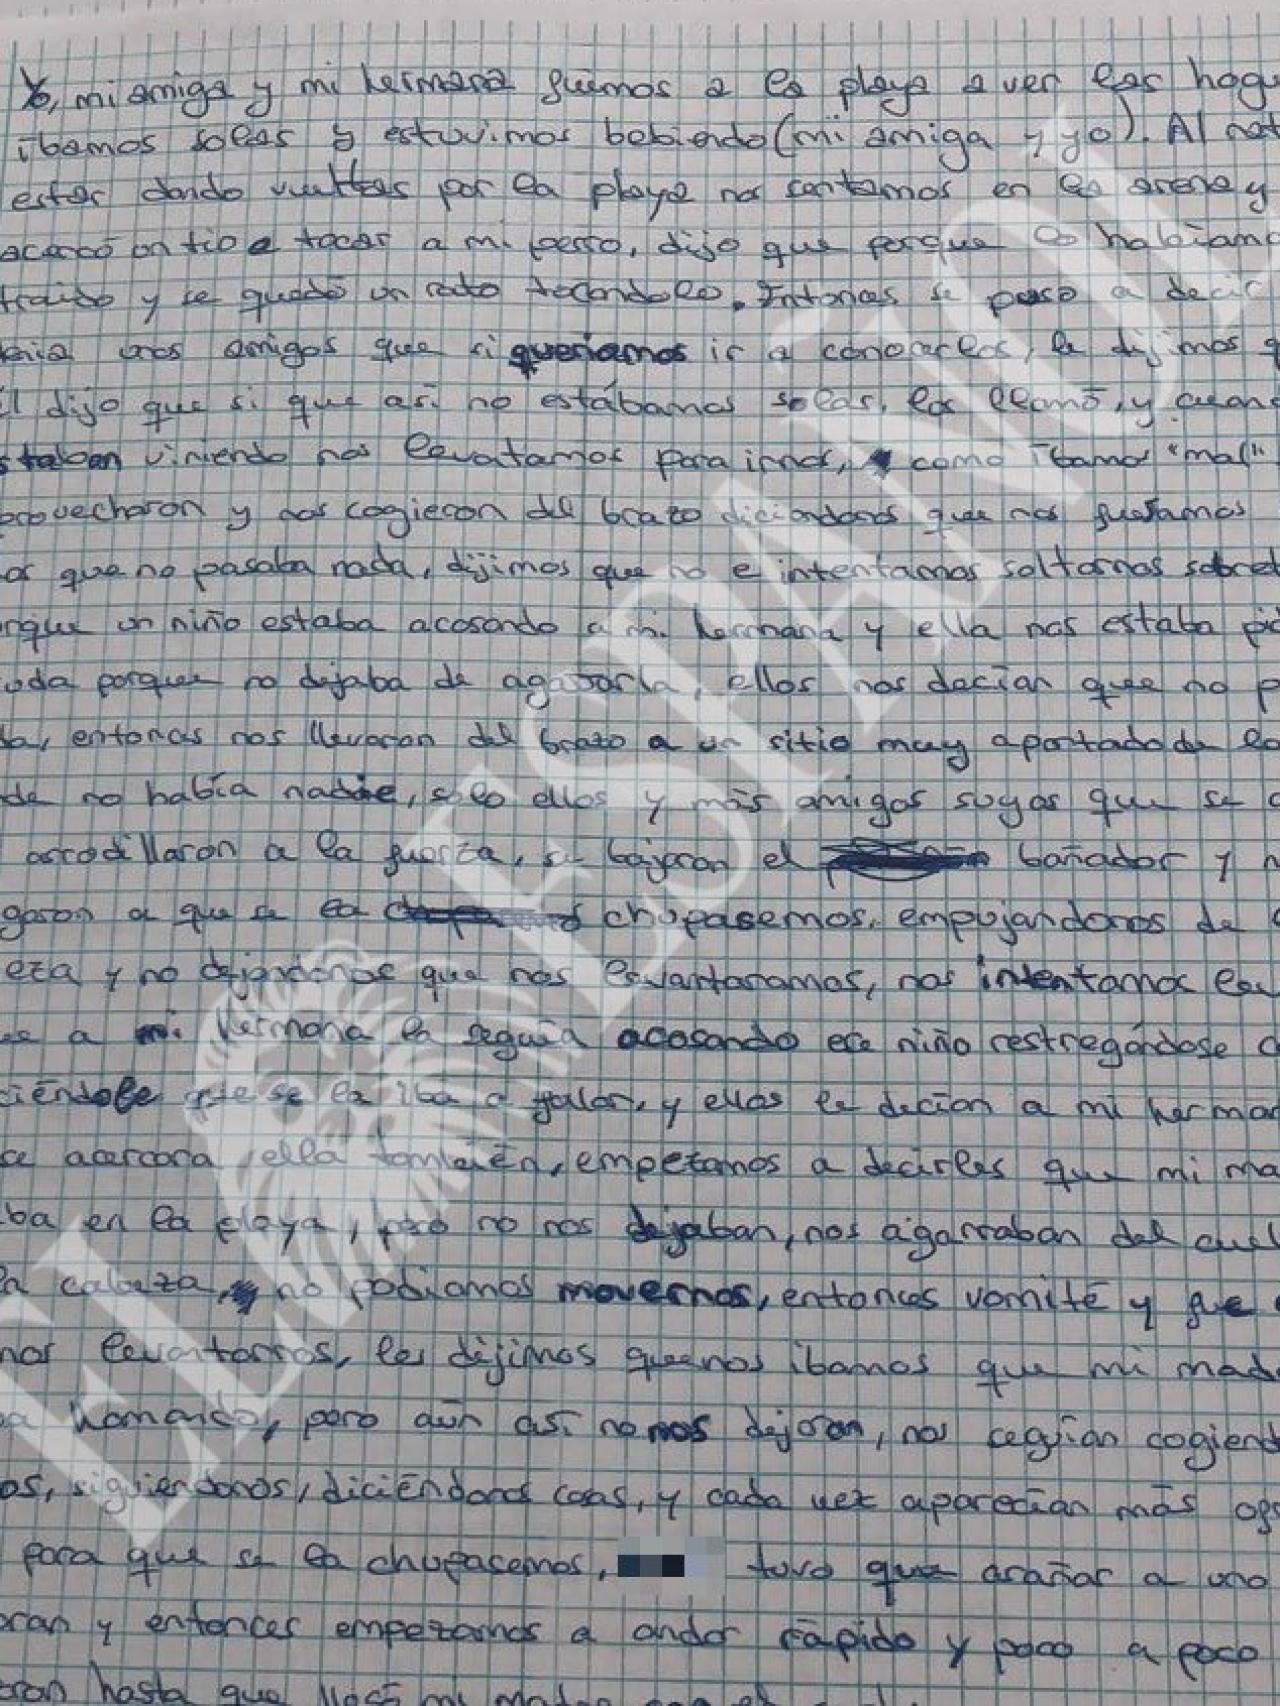 Yo, mi amiga y mi hermana fuimos a la playa a ver las hogu
íbamos solas y estuvimos bebiendo (mi amiga y yo). Al rat
estar dando vueltas por la playa nos sentamos en la arena y
acercó un tío a tocar a mi perro, dijo que porque lo habíamo
traido y se quedó un rato tocandolo. Entonces se puso a decir
enia unos amigos que si queriamos ir a conocerlos, le dijimos q
él dijo que si que así no estábamos solas, los llamó, y cuand
staban viniendo nos levatamos para irnos, como íbamos "mal"
provecharon y nos cogieron del brazo diciendonos que nos fueramos
or que no pasaba nada, dijimos que no e intentamos soltarnos sobret
rque un niño estaba acosando a mi hermana y ella nos estaba pid
uda porque no dejaba de agarrarla, ellos nos decían que no p
da, entonces nos llevaron del brazo a un sitio muy apartado de lo
de no había nadie, solo ellos y más amigos suyos que se a
arrodillaron a la fuerza, se bajaron el bañador y n
garon a que se la chupasemos, empujandonos de
eza y no dejándonos que nos levantaramos, nos intentamos lev
e a mi hermana la seguía acosando ese niño restregándose c
ciéndole que se la iba a follar, y ellos le decían a mi herman
se acercara ella también, empezamos a decirles que mi mad
ba en la playa, pero no nos dejaban, nos agarraban del cuell
a cabeza, no podíamos movernos, entonces vomité y fue c
nos levantarnos, les dijimos que nos ibamos que mi madr
a llamando, pero aún así no nos dejaron, nos segían cogiend
os, siguiéndonos, diciéndonos cosas, y cada vez aparecían más
para que se la chupasemos, tuvo que arañar a uno
aran y entonces empezamos a andar rápido y poco a poco
aron hasta que llegó mi madre
EL ESPAÑOL